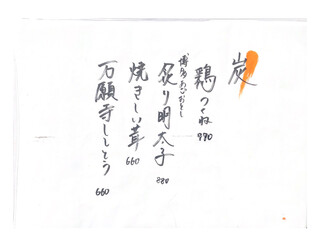 炭
鶏つくね 990
博多あごおとし
炙り明太子 880
焼きしい茸 660
万願寺ししとう 660